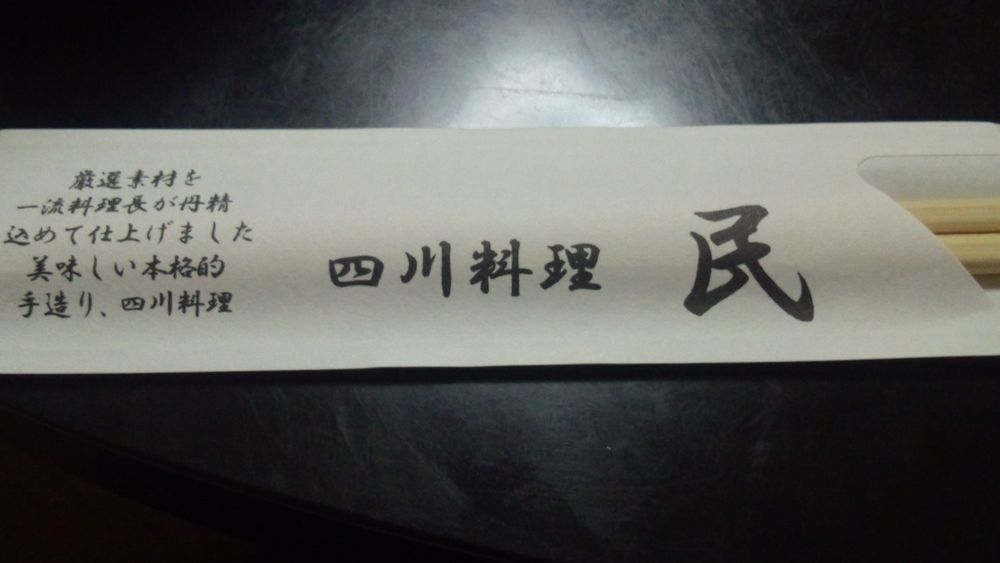 厳選素材を
一流料理長が丹精
込めて仕上げました
美味しい本格的
手造り、四川料理
四川料理 民